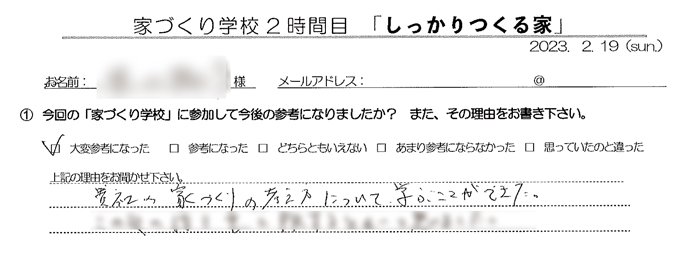 家づくり学校2時間目 「しっかりつくる家」
2023. 2. 19 (sun.)
お名前: 様 メールアドレス: @
① 今回の「家づくり学校」に参加して今後の参考になりましたか? また、その理由をお書き下さい。
☑ 大変参考になった □ 参考になった □ どちらともいえない □ あまり参考にならなかった □ 思っていたのと違った
上記の理由をお聞かせ下さい。
貴社の家づくりの考え方について学ぶことができた。